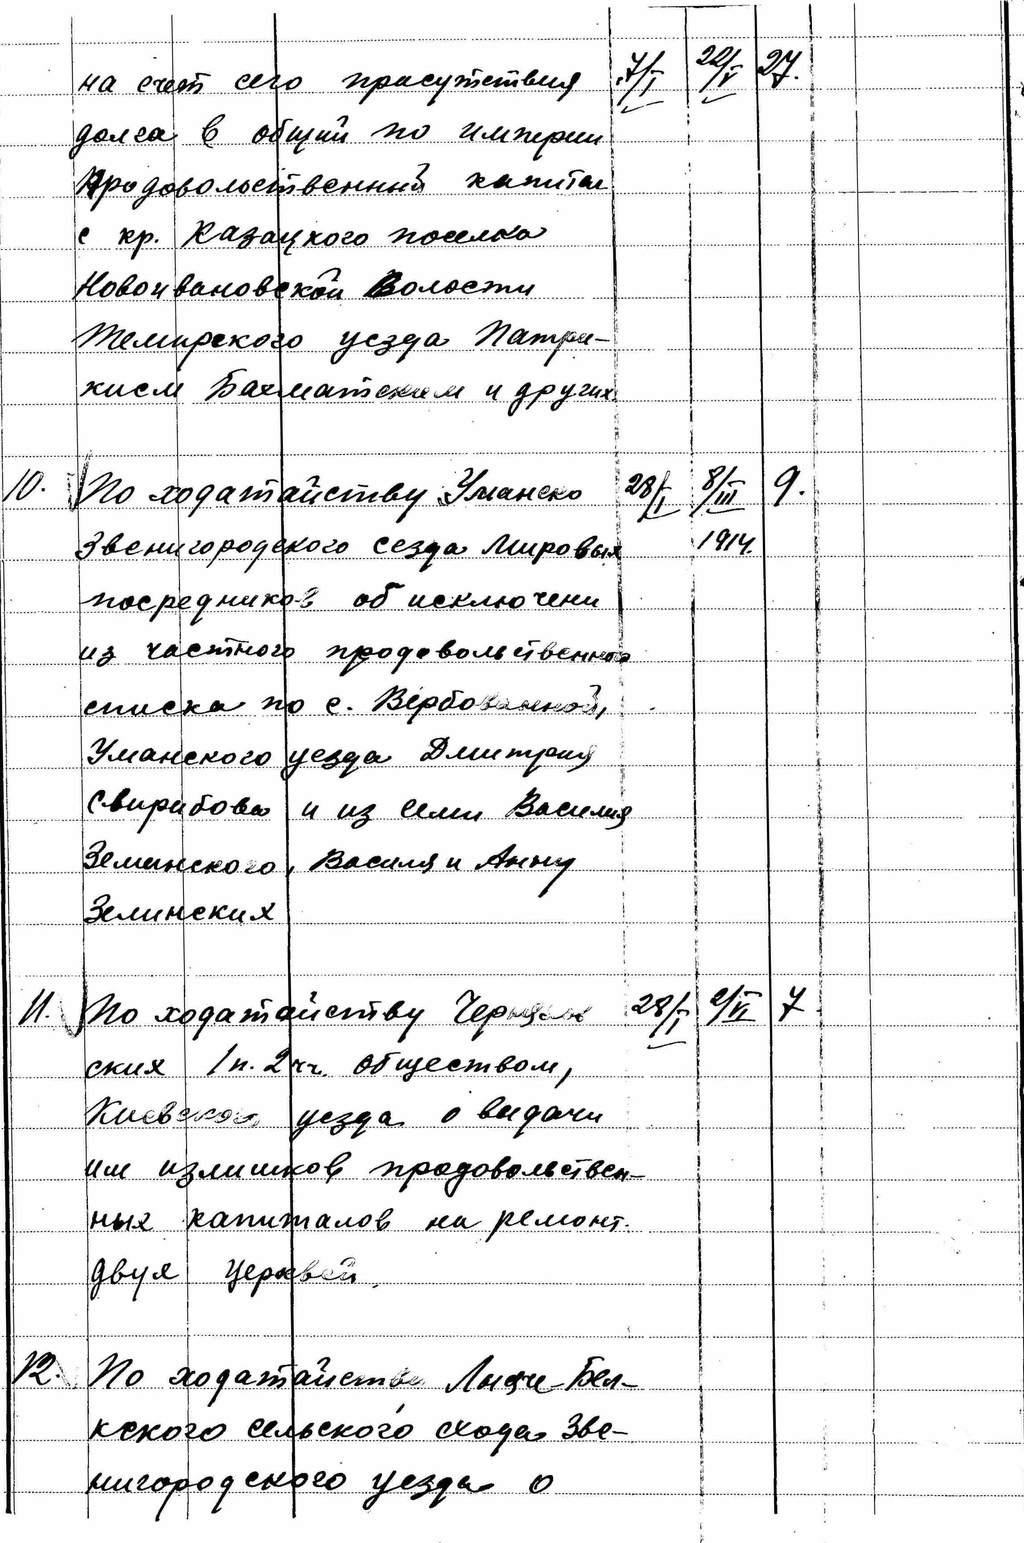 на счет сего присутствия 7/I 22/V 27.
долга в общий по империи
продовольственный капитал
с кр. Казацкого поселка
Новоивановской Волости
Темирского уезда Патри-
кием Бахматским и других
10. По ходатайству Уманско 28/I 8/III 9.
Звенигородского сезда Мировых 1914.
посредников об исключени
из частного продовольственного
списка по с. Вербованной,
Уманского уезда Дмитрия
Свирибова и из семи Василия
Земинского, Василя и Анну
Зелинских
11. По ходатайству 28/I 2/VI 7.
ских 1 п. 2 чч. обществом,
Киевского уезда о видачи
им излишков продовольствен-
ных капиталов на ремонт.
двух церквей.
12. По ходатайству Бел-
кского сельского схода Зве-
нигородского уезда о